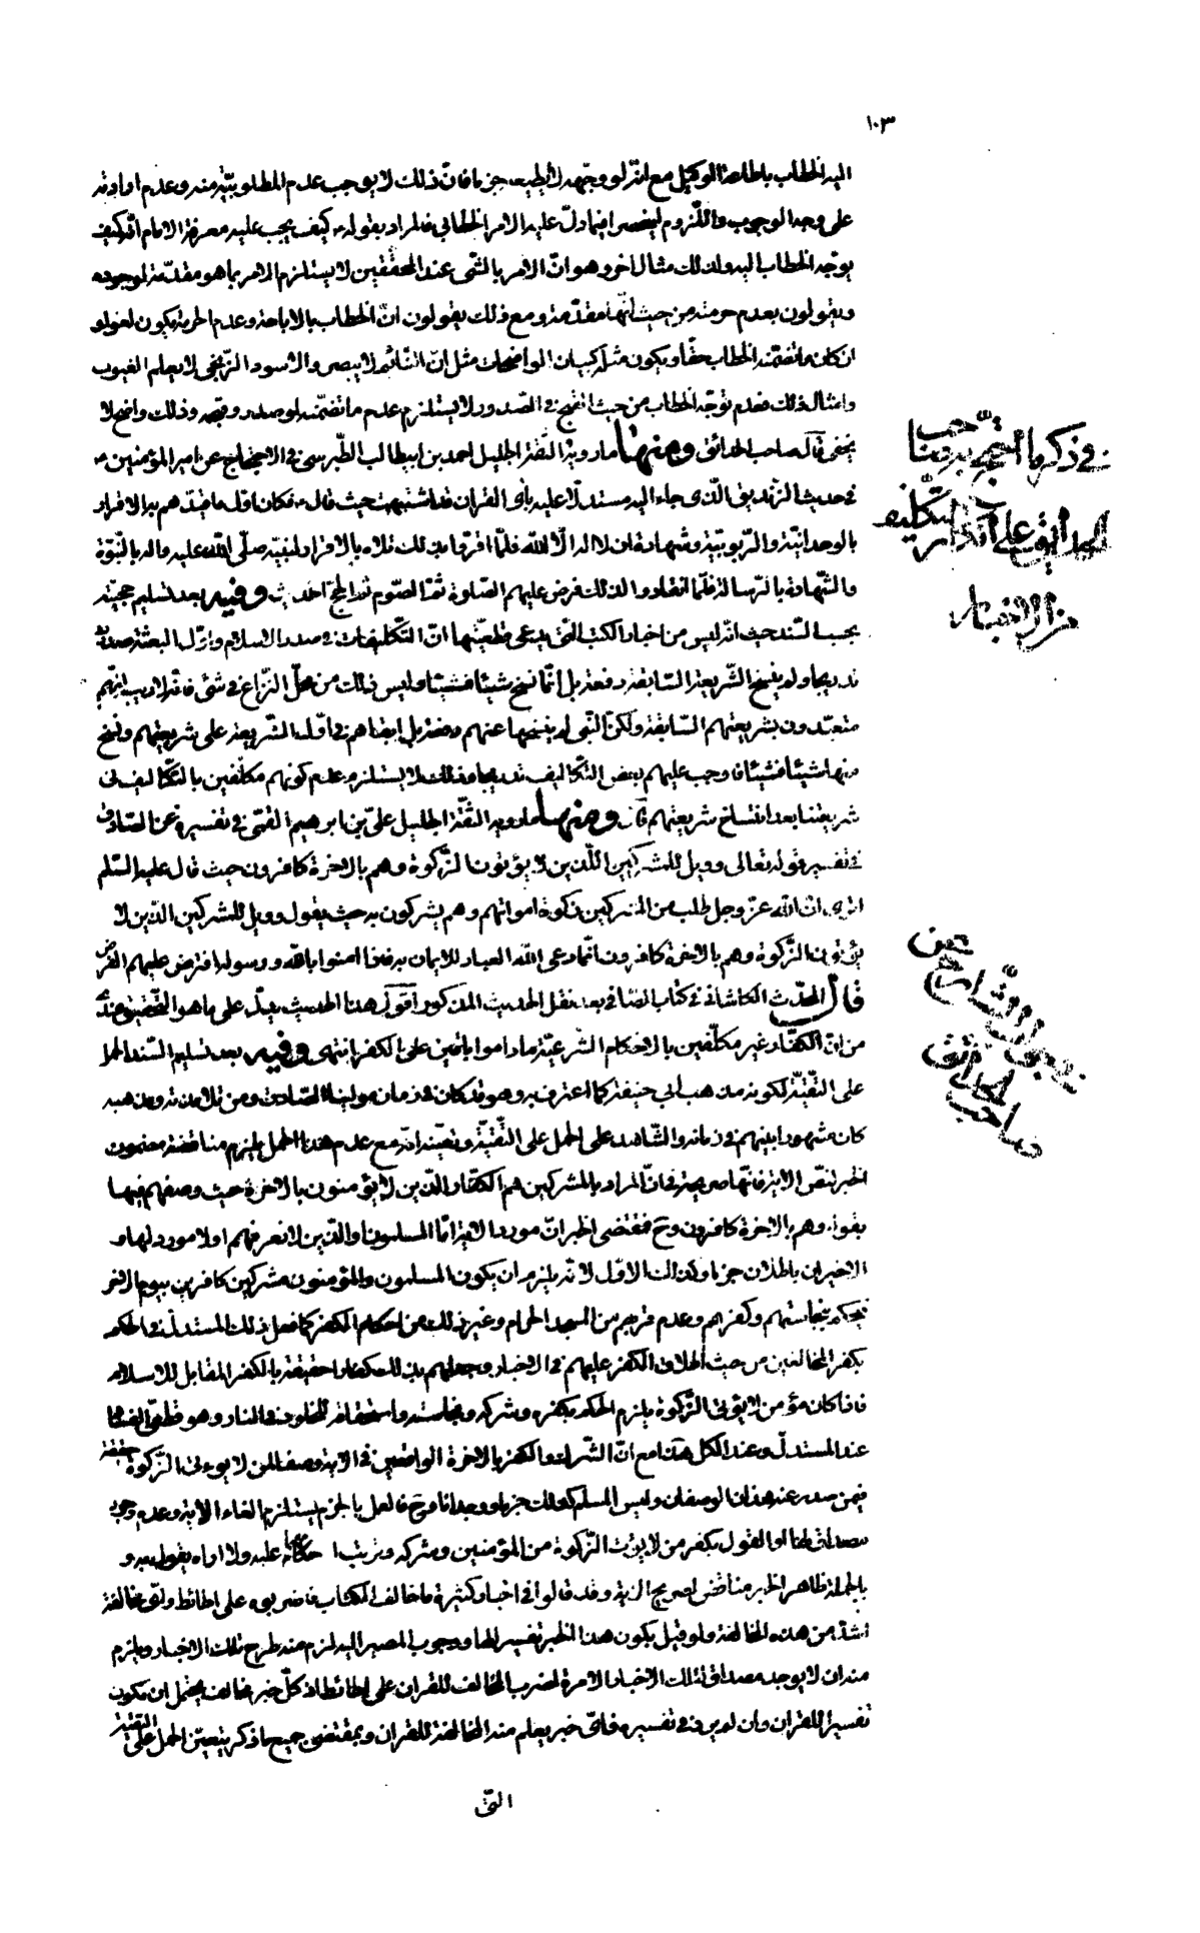 ١٠٣
اليه الخطاب باطاعة الوكيل مع انّه لو وجّهه لا يطيعه جزما فانّ ذلك لا يوجب عدم المطلوبيّة منه وعدم ارادته
على وجه الوجوب واللّزوم ليخسر فيما دلّ عليه الامر الخطابي فالمراد بقوله ع كيف يجب عليه معرفة الامام انّه كيف
يوجّه الخطاب اليه ولذلك مثال اخر وهو انّ الامر بالشئ عند المحققين لا يستلزم الامر بما هو مقدّمة لوجوده
ويقولون بعدم حرمته من حيث انّها مقدّمة ومع ذلك يقولون انّ الخطاب بالاباحة وعدم الحرمة يكون لغوا و
ان كان ما تضمّنه الخطاب حقّا ويكون مثله كبيان الواضحات مثل انّ النّائم لا يبصر والاسود الزّنجى لا يعلم الغيوب
وامثال ذلك فعدم توجّه الخطاب من حيث القبح في الصّدور لا يستلزم عدم ما تضمّنه لو صدر وقبحه وذلك واضح لا
يخفى قال صاحب الحدائق ومنها ما رويه الثّقة الجليل احمد بن ابيطالب الطّبرسى في الاحتجاج عن امير المؤمنين ع
في حديث الزّنديق الّذى جاء اليه مستدلّا عليه بأى القران قد اشتبهت حيث قال ع فكان اوّل ما قيّدهم به الاقرار
بالوحدانيّة والرّبوبيّة وشهادة ان لا اله الّا الله فلمّا اقرّوا بذلك تلاه بالاقرار لنبيّه صلّى الله عليه واله بالنّبوّة
والشّهادة بالرّسالة فلمّا انقادوا لذلك فرض عليهم الصّلوة ثمّ الصّوم ثمّ الحجّ الحديث وفيه بعد تسليم حجيّته
بحسب السّند حيث انّه ليس من اخبار الكتب الّتى يدعى قطعيّتها انّ التّكليفات في صدر الاسلام واوّل البعثة صدرت
تدريجا ولم ينسخ الشّريعة السّابقة دفعة بل انّما نسخ شيئا فشيئا وليس ذلك من محلّ النّزاع في شئ فانّه لا ريب انّهم
متعبّدون بشريعتهم السّابقة ولكنّ النّبى لم ينسخها عنهم دفعة بل ابقاهم في اوّل الشّريعة على شريعتهم ونسخ
منها شيئا فشيئا فاوجب عليهم بعض التّكاليف تدريجا وذلك لا يستلزم عدم كونهم مكلّفين بالتّكاليف في
شريعتنا بعد انتساخ شريعتهم قال ومنها ما رويه الثّقة الجليل علىّ بن ابرهيم القمّى في تفسيره عن الصّادق
في تفسير قوله تعالى وويل للمشركين الّذين لا يؤتون الزّكوة وهم بالاخرة كافرون حيث قال عليه السّلم
اترى انّ الله عزّ وجل طلب من المشركين زكوة اموالهم وهم يشركون به حيث يقول وويل للمشركين الّذين لا
يؤتون الزّكوة وهم بالاخرة كافرون انّما دعى الله العباد للايمان به فاذا امنوا بالله ورسوله افترض عليهم الفرض
قال المحدّث الكاشانى في كتاب الصّافى بعد نقل الحديث المذكور اقول هذا الحديث يدلّ على ما هو التّحقيق عندى
من انّ الكفّار غير مكلّفين بالاحكام الشّرعيّة ماداموا باقين على الكفر انتهى وفيه بعد تسليم السّند الحمل
على التّقيّة لكونه مذهب ابي حنيفة كما اعترف به وهو قد كان في زمان مولينا الصّادق ومن تلامذته ومذهبه
كان مشهورا بينهم في زمانه والشّاهد على الحمل على التّقيّة وتعيّنه انّه مع عدم هذا الحمل يلزم مناقضة مضمون
الخبر لنصّ الاية فانّها صريحة في انّ المراد بالمشركين هم الكفّار الّذين لا يؤمنون بالاخرة حيث وصفهم فيها
بقوله وهم بالاخرة كافرون وح فمقتضى الخبر انّ مورد الاية امّا المسلمون او الّذين لا نعرفهم او لا مورد لها و
الاخيران باطلان جزما وكذلك الاوّل لانّه يلزم ان يكون المسلمون والمؤمنون مشركين كافرين بيوم الاخر
فيحكم بنجاستهم وكفرهم وعدم قربهم من المسجد الحرام وغير ذلك من احكام الكفر كما فعل ذلك المستدلّ في الحكم
بكفر المخالفين من حيث اطلاق الكفر عليهم في الاخبار وجعلهم بذلك كفارا حقيقة بالكفر المقابل للاسلام
فاذا كان مؤمن لا يؤتى الزّكوة يلزم الحكم بكفره وشركه ونجاسته واستحقاقه للخلود في النار وهو قطعىّ الفساد
عند المستدلّ وعند الكل هذا مع انّ الشّرك والكفر بالاخرة الواقعين في الاية وصف لمن لا يؤتى الزّكوة حقيقة
فيمن صدر عنه هذان الوصفان وليس المسلم كذلك جزما ووجدانا وح فالعمل بالخبر يستلزم الغاء الاية وعدم وجود
مصداق لها او القول بكفر من لا يؤتى الزّكوة من المؤمنين وشركه وترتب احكامهما عليه ولا اراه يقول به و
بالجملة ظاهر الخبر مناقض لصريح الاية وقد قالوا في اخبار كثيرة ما خالف الكتاب فاضربوه على الحائط واىّ مخالفة
اشدّ من هذه المخالفة ولو قيل بكون هذا الخبر تفسيرا لها ووجوب المصير اليه لزم منه طرح تلك الاخبار ويلزم
منه ان لا يوجد مصداق لتلك الاخبار الامرة لضرب المخالف للقران على الحائط اذ كلّ خبر مخالف يحتمل ان يكون
تفسيرا للقران وان لم يرد في تفسيره فاىّ خبر يعلم منه المخالفة للقران وبمقتضى جميع ما ذكر يتعيّن الحمل على التقيّة
الّتى
في ذكر ما استجرّ به صاحب
الحدائق على انكار تكليف
من الاخبار
صاحب الحدائق